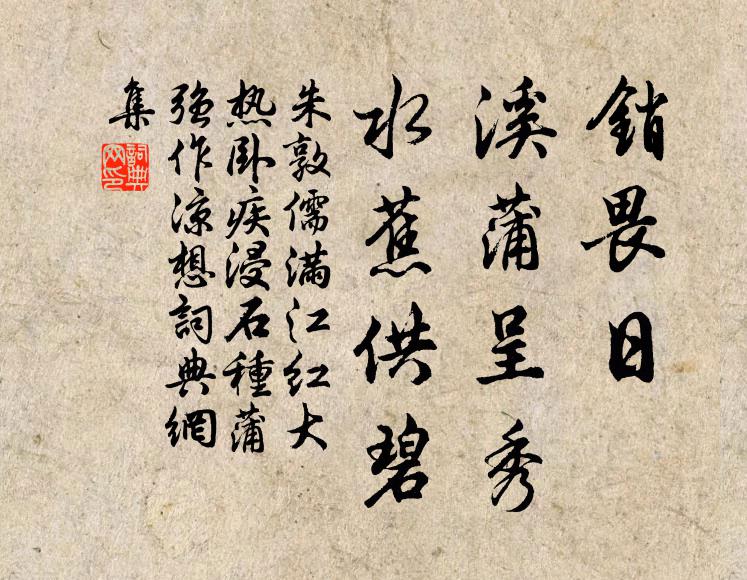 銷畏日
溪蒲呈秀
水蕉供碧
朱敦儒满江红大
热卧疾浸石種蒲
强作凉想詞典網
集
詞典網印